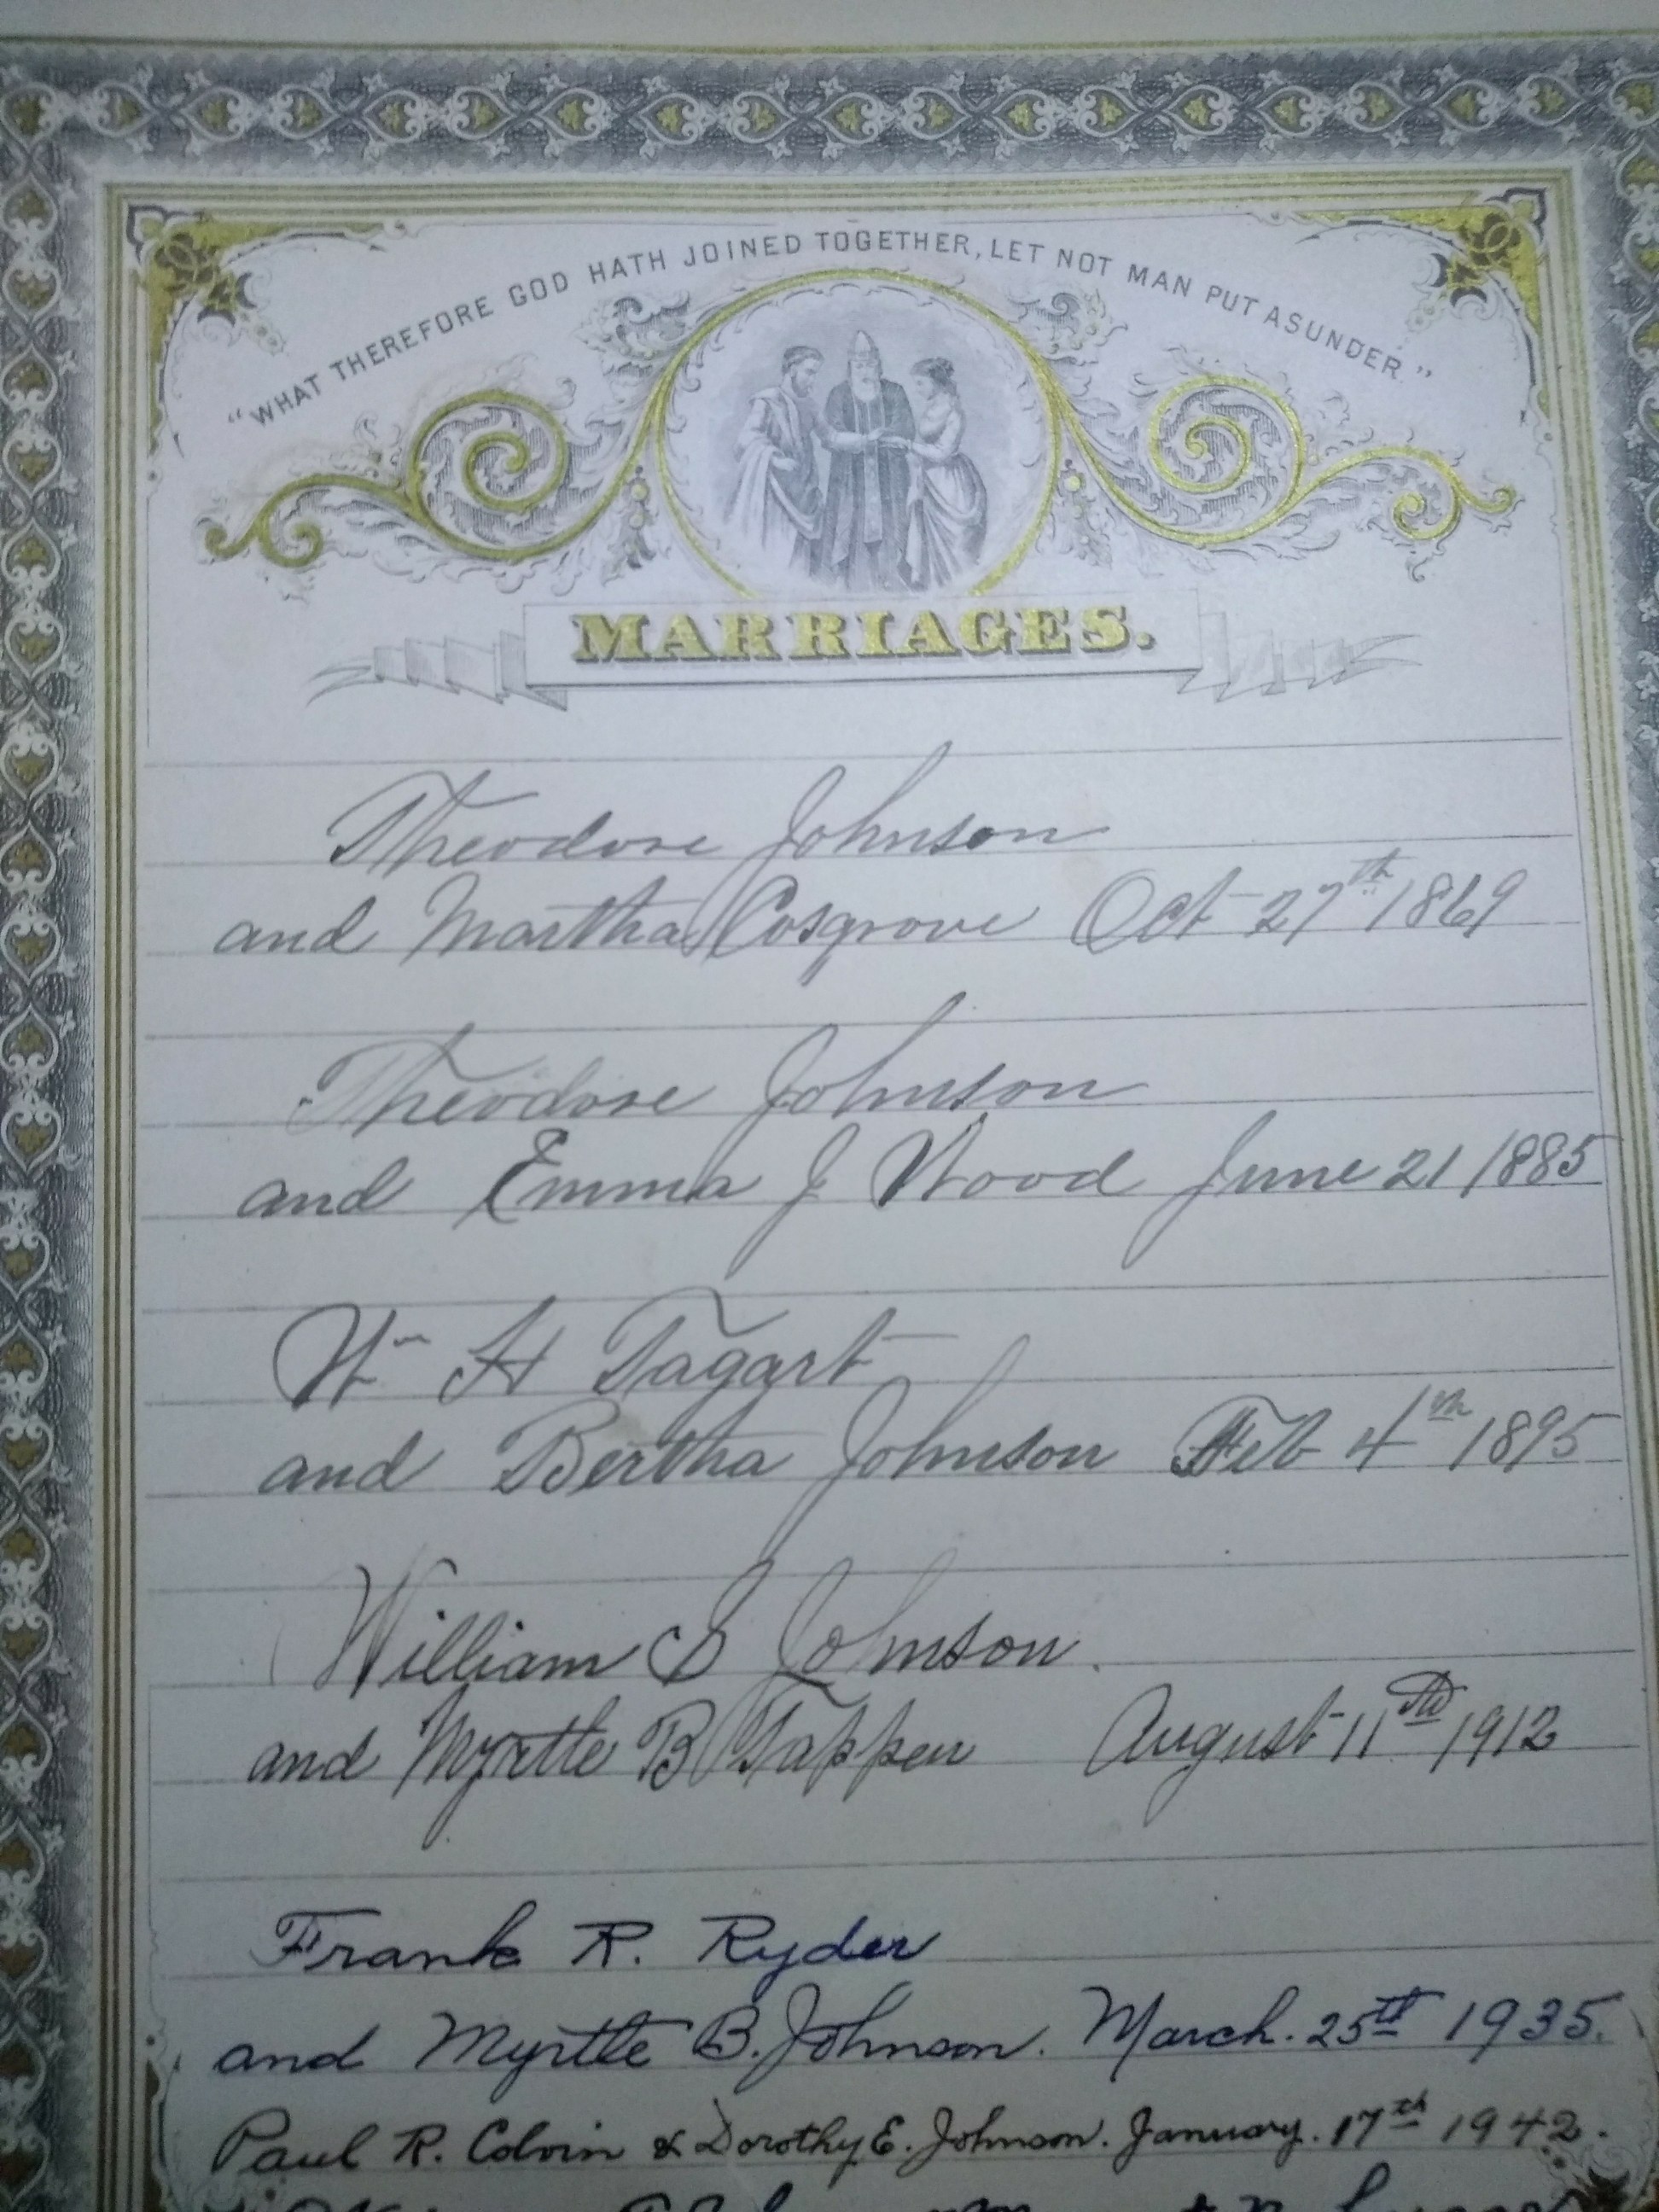 "WHAT THEREFORE GOD HATH JOINED TOGETHER, LET NOT MAN PUT ASUNDER."
MARRIAGES.
Theodore Johnson
and Martha Cosgrove Oct 27th 1869
Theodore Johnson
and Emma J Wood June 21 1885
Wm H Tagart
and Bertha Johnson Feb 4th 1895
William S Johnson.
and Myrtle B Tappen August 11th 1912
Frank R. Ryder
and Myrtle B. Johnson. March. 25th 1935.
Paul R. Colvin & Dorothy E. Johnson. January. 17th 1942.